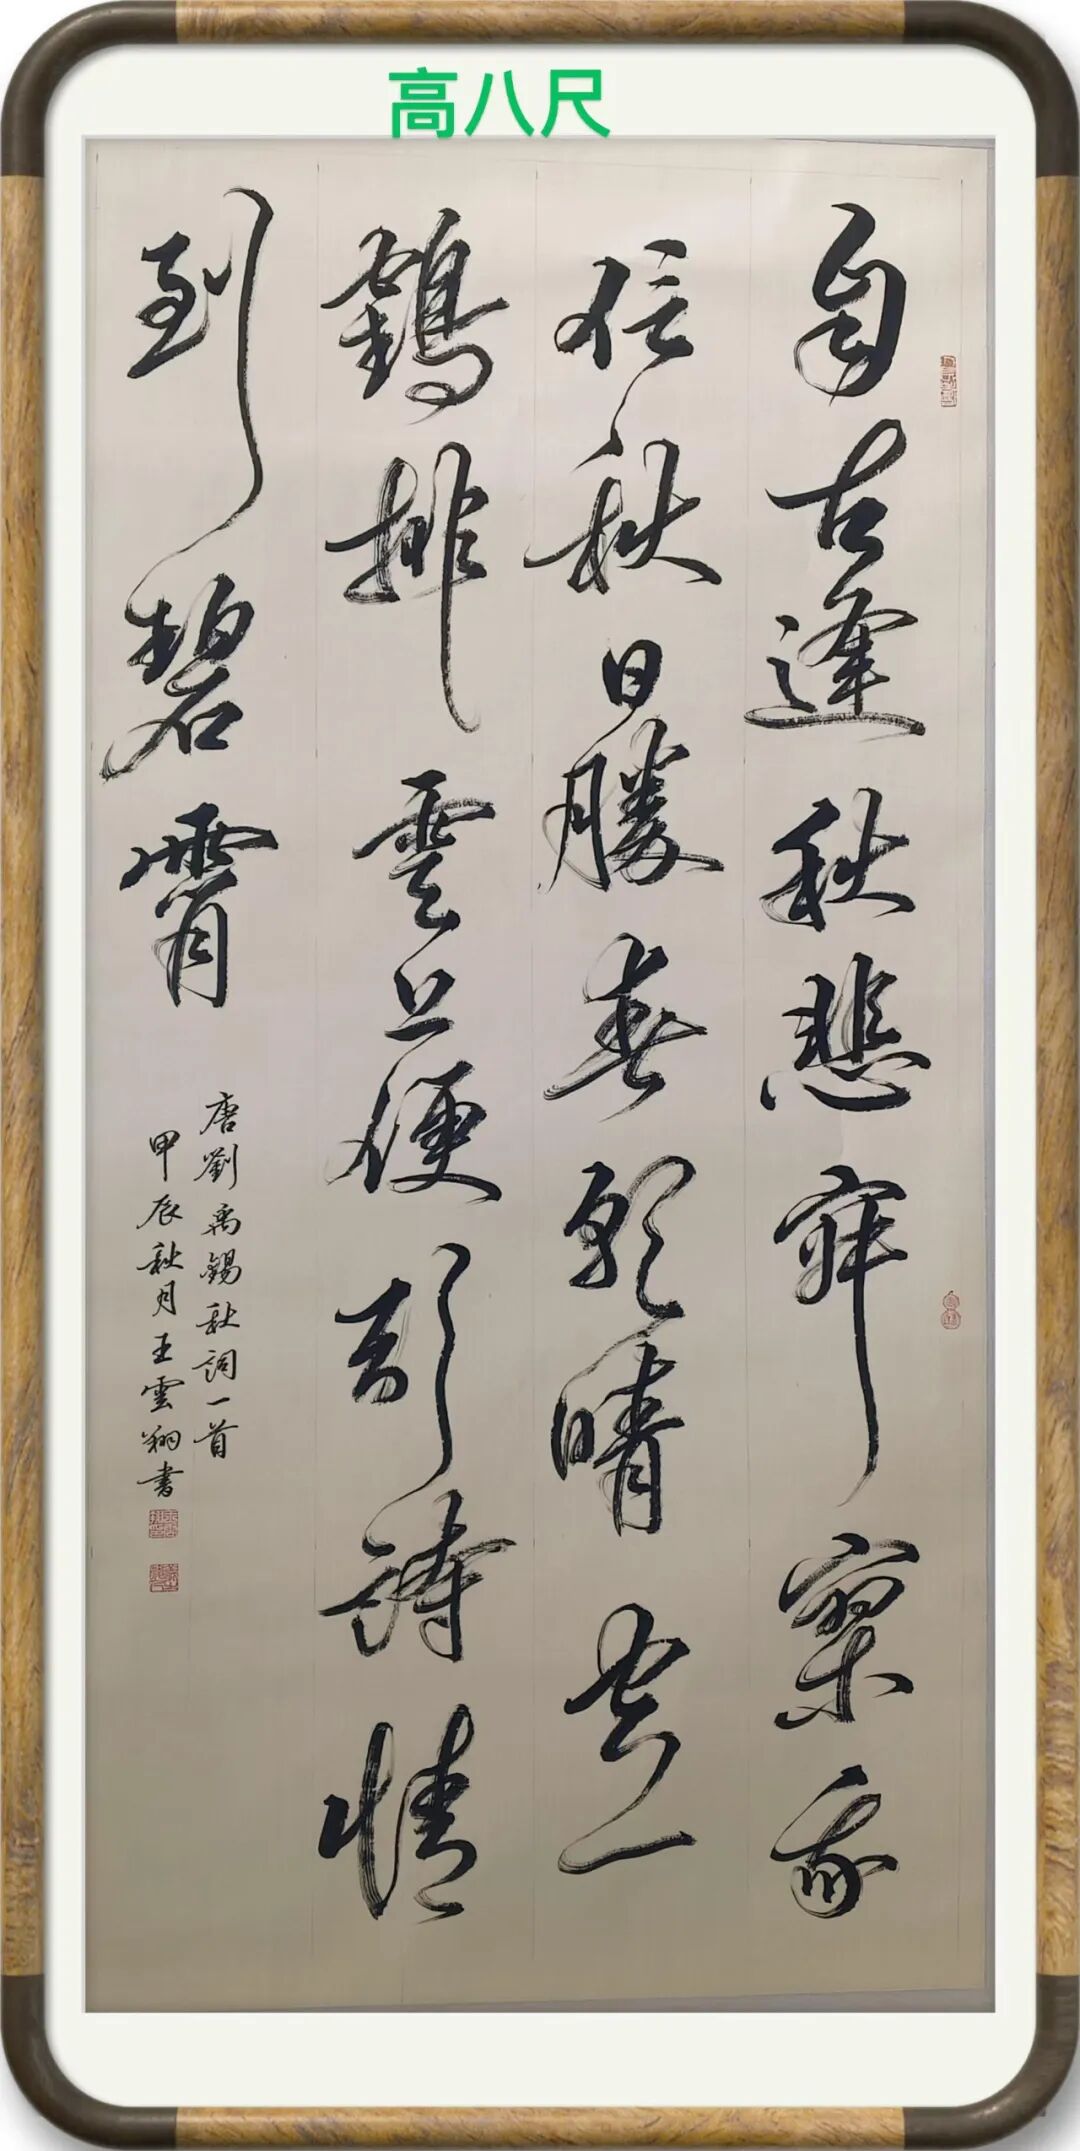 高八尺
自古逢秋悲寂寥我
信秋日勝春朝晴空一
鶴排雲上便引詩情
到碧霄
唐劉禹錫秋詞一首
甲辰秋月王雲翔書